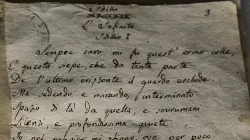 Idilli
MDCCCXIX
L'Infinito
Idillio I
Sempre caro mi fu quest'ermo colle,
E questa siepe, che da tanta parte
De l'ultimo orizzonte il guardo esclude.
Ma sedendo e mirando, interminato
Spazio di là da quella, e sovrumani
Silenzi, e profondissima quiete
Io nel pensier mi fingo, ove per poco